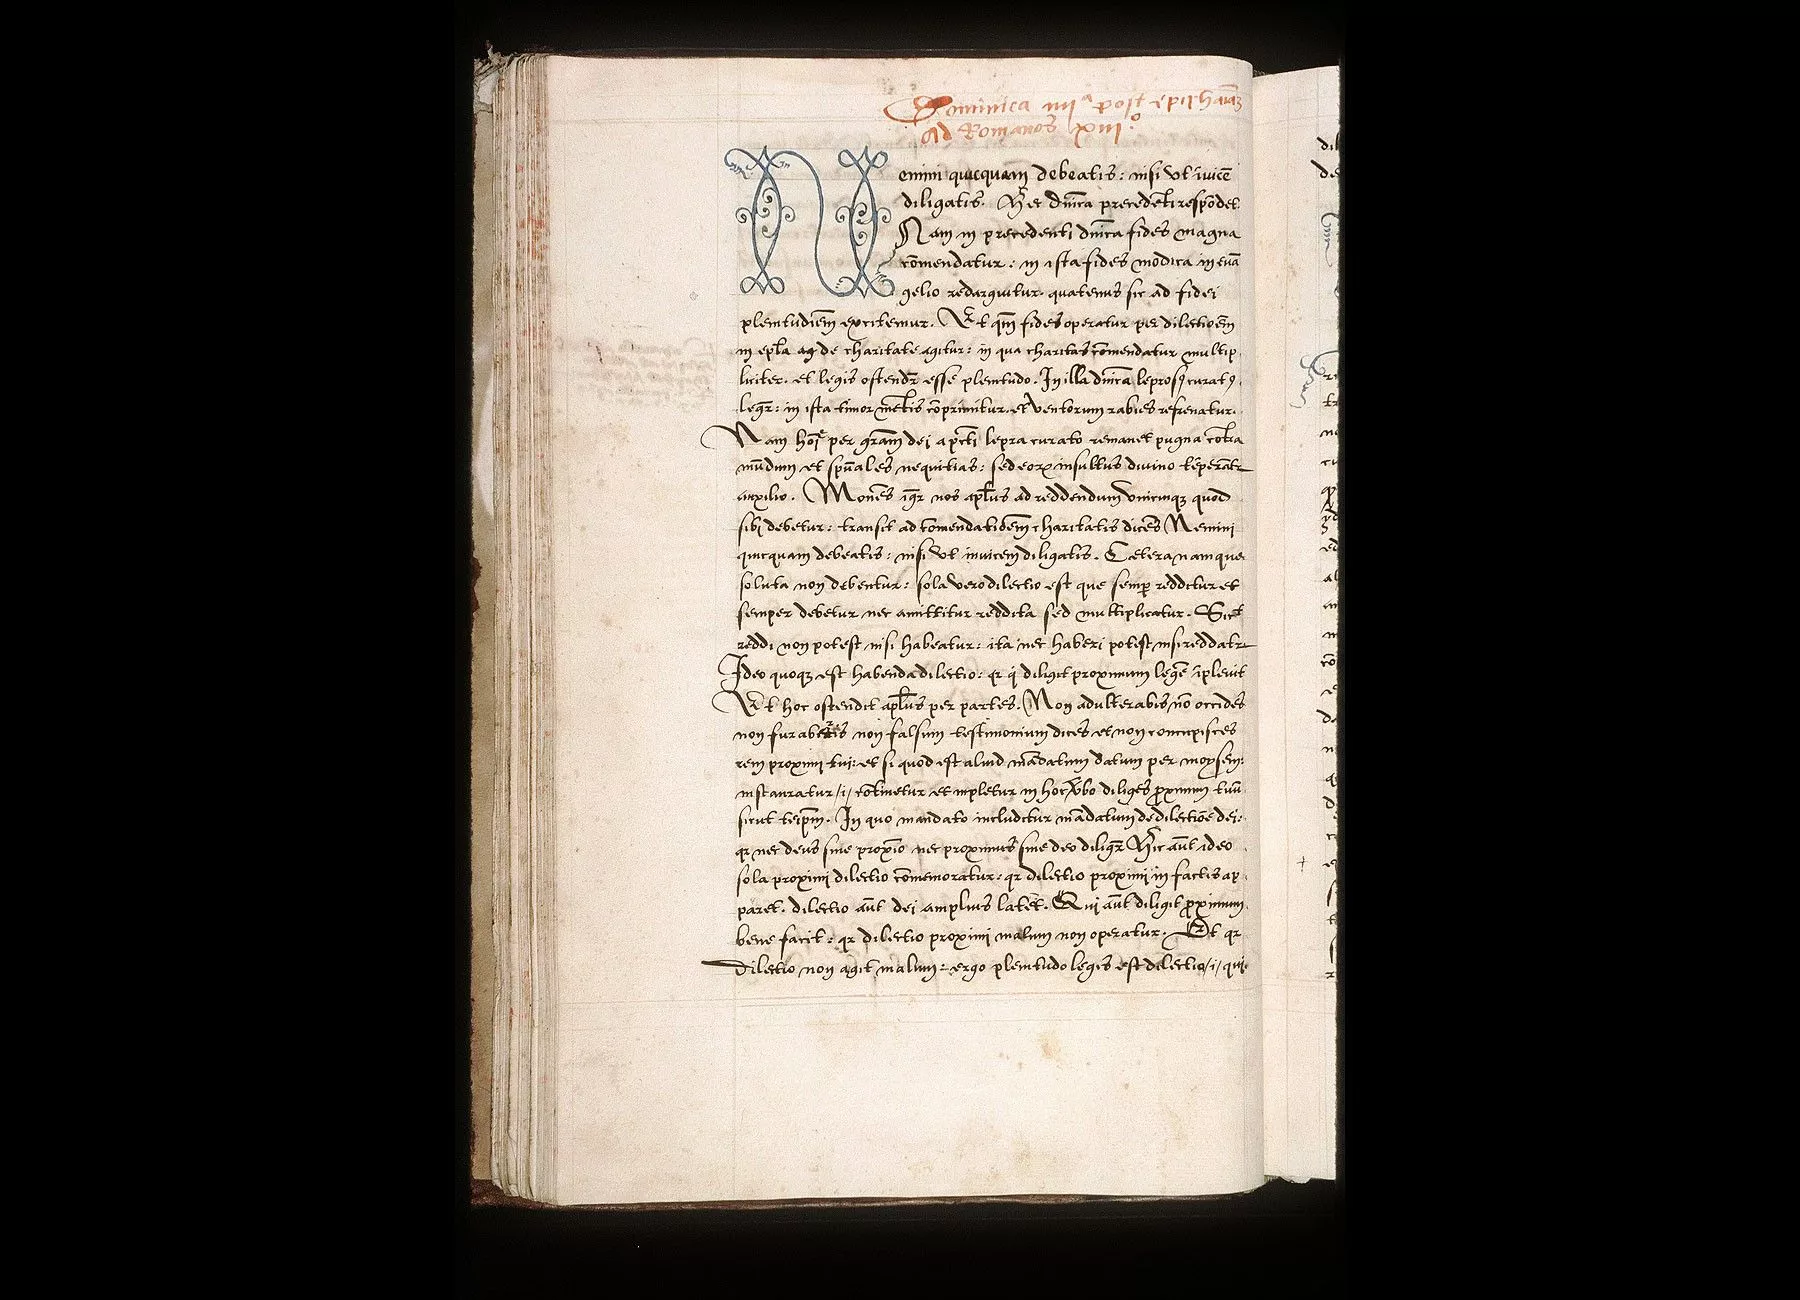 Dominica iiii^a post epiphaniā
Ad Romanos xiii^o
Nemini quicquam debeatis : nisi vt īuicē
diligatis. Hec dn̄ica precedēti respōdet.
Nam in precedenti dn̄ica fides magna
cōmendatur : in ista fides modica in euā
gelio redarguitur. quatenus sic ad fidei
plenitudinē excitemur. Et qm̄ fides operatur per dilectioēm
in epl̄a de charitate agitur : in qua charitas cōmendatur multip
liciter. et legis ostendit᷑ esse plenitudo. In illa dn̄ica leprosꝰ curatꝰ
legr̄ : in ista timor mētis cōprimitur. et ventorum rabies refrenatur.
Nam hoī per grām dei a pcc̄ti lepra curato remanet pugna cōtra
mūdum et spūales nequitias : sed eorꝝ insultus diuino tēperātr
auxilio. Monēs igr̄ nos apl̄us ad reddendum vnicuiqꝫ quod
sibi debetur : transit ad comendatiōem charitatis dicēs Nemini
quicquam debeatis : nisi vt inuicem diligatis. Cetera namque
soluta non debentur : sola vero dilectio est que semꝑ redditur et
semper debetur nec amittitur reddita sed multiplicatur. Sict̄
reddi non potest nisi habeatur : ita nec haberi potest nisi reddatr
Ideo quoqꝫ est habenda dilectio : qr q̇ diligit proximum legē īpleuit
Et hoc ostendit apl̄us per partes. Non adulterabis nō occides
non furaberis non falsum testimonium dices et non concupisces
rem proximi tui : et si quod est aliud mādatum datum per moysem :
instauratur /i/ cōtinetur et impletur in hoc v̄bo diliges ꝓximum tuū
sicut teip̄m. In quo mandato includitur mādatum de dilectiōe dei :
qr nec deus sine proxīo nec proximus sine deo diligr̄ Hic aūt ideo
sola proximi dilectio cōmemoratur : qr dilectio proximi in factis ap
paret. dilectio aūt dei amplius latet. Qui aūt diligit ꝓximum
bene facit : qr dilectio proximi malum non operatur. Et qr
dilectio non agit malum : ergo plenitudo legis est dilectio /i/ quia